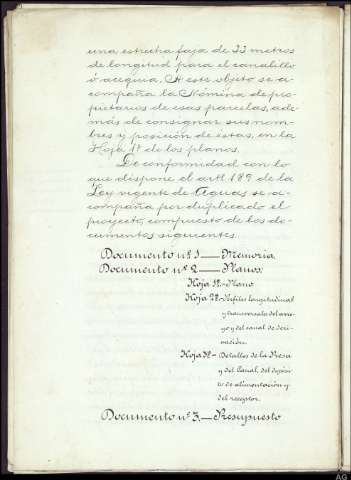 una estrecha faja de 33 metros
de longitud para el canalillo
ó acequia. A este objeto se a-
compaña la Nómina de pro-
pietarios de esas parcelas, ade-
más de consignar sus nom-
bres y posición de éstas, en la
Hoja 1ª de los planos.
De conformidad con lo
que dispone el artº 189 de la
Ley vigente de Aguas se a-
compaña por duplicado el
proyecto, compuesto de los do-
cumentos siguientes.
Documento nº 1 — Memoria.
Documento nº 2 — Planos.
Hoja 1ª - Plano
Hoja 2ª - Perfiles longitudinal
y transversales del arro-
yo y del canal de deri-
vación.
Hoja 3ª - Detalles de la Presa
y del Canal, del depósi-
to de alimentación y
del receptor.
Documento nº 3 — Presupuesto
AG